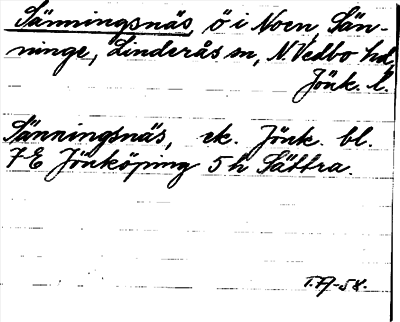 Sänningsnäs, ö i Noen, Sän-
ninge, Linderås sn, N. Vedbo hd,
Jönk. l.
Sänningsnäs, ek. Jönk. bl.
7 E Jönköping 5 h Sättra.
T. A-58.